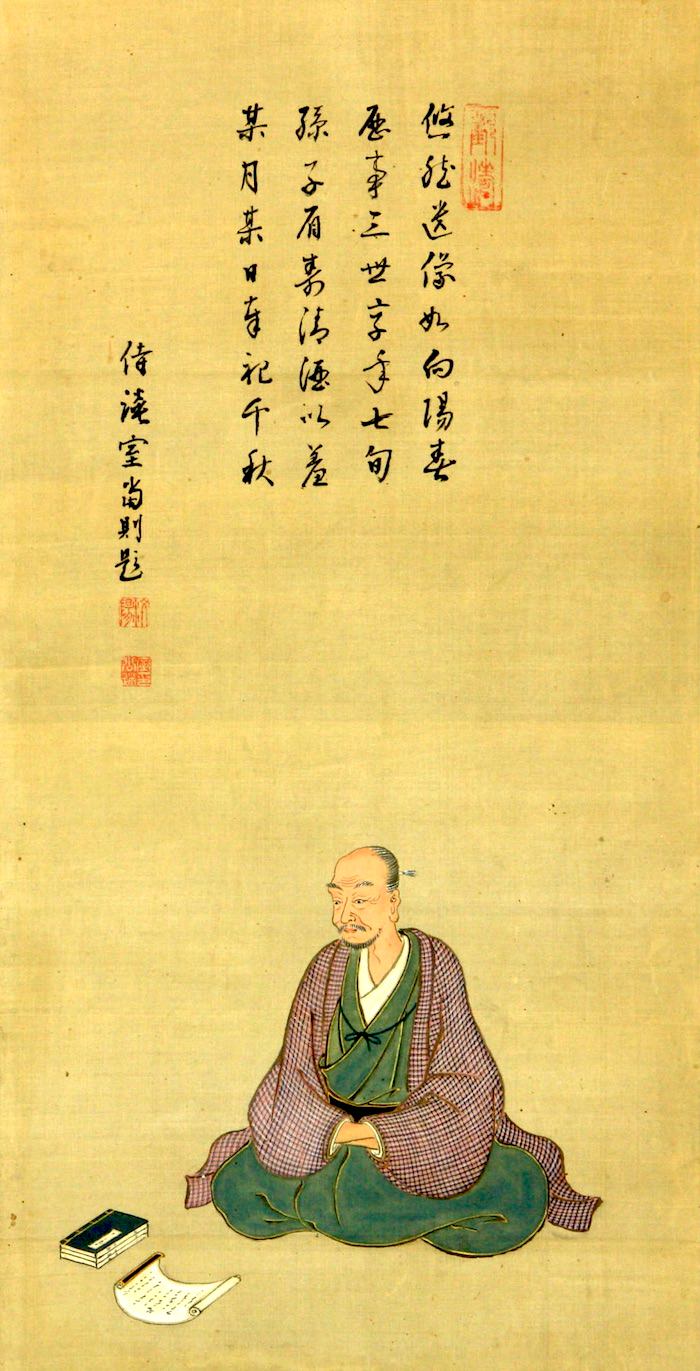 悠然遺像如向陽春
歴事三世享年七旬
孫子眉寿清酒以羞
某月某日奉祀千秋
侍讀室當則題